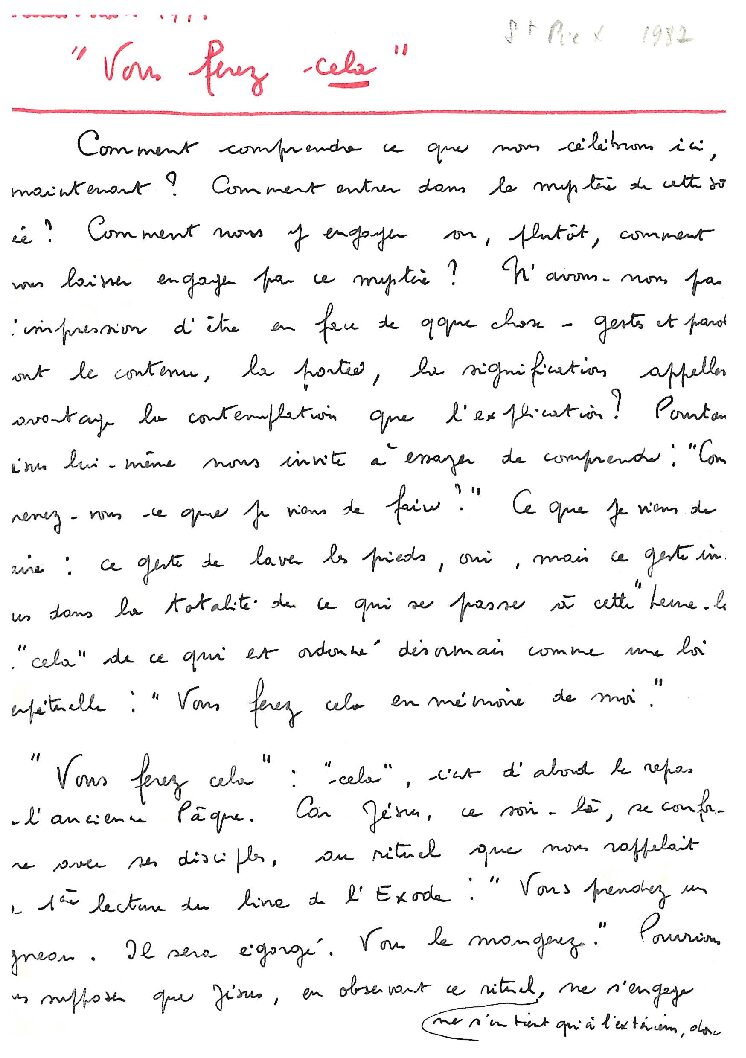 St Pie X 1982
"Vous ferez cela"
Comment comprendre ce que nous célébrons ici,
maintenant ? Comment entrer dans le mystère de cette so
ée ? Comment nous y engager ou, plutôt, comment
nous laisser engager par ce mystère ? N'avons-nous pas
l'impression d'être en face de qque chose - gestes et parol
ont le contenu, la portée, la signification appellent
avantage la contemplation que l'explication ? Pourtan
ésus lui-même nous invite à essayer de comprendre : "Com
renez-vous ce que je viens de faire ?" Ce que je viens de
aire : ce geste de laver les pieds, oui, mais ce geste in
us dans la totalité de ce qui se passe à cette "heure-là
"cela" de ce qui est ordonné désormais comme une loi
erpétuelle : "Vous ferez cela en mémoire de moi."
"Vous ferez cela" : "cela", c'est d'abord le repas
l'ancienne Pâque. Car Jésus, ce soir-là, se confor-
me avec ses disciples, au rituel que nous rappelait
a 1ère lecture du livre de l'Exode : "Vous prendrez un
gneau. Il sera égorgé. Vous le mangerez." Pourrions
us supposer que Jésus, en observant ce rituel, ne s'engage
ne s'en tient qu'à l'extérieur, donc